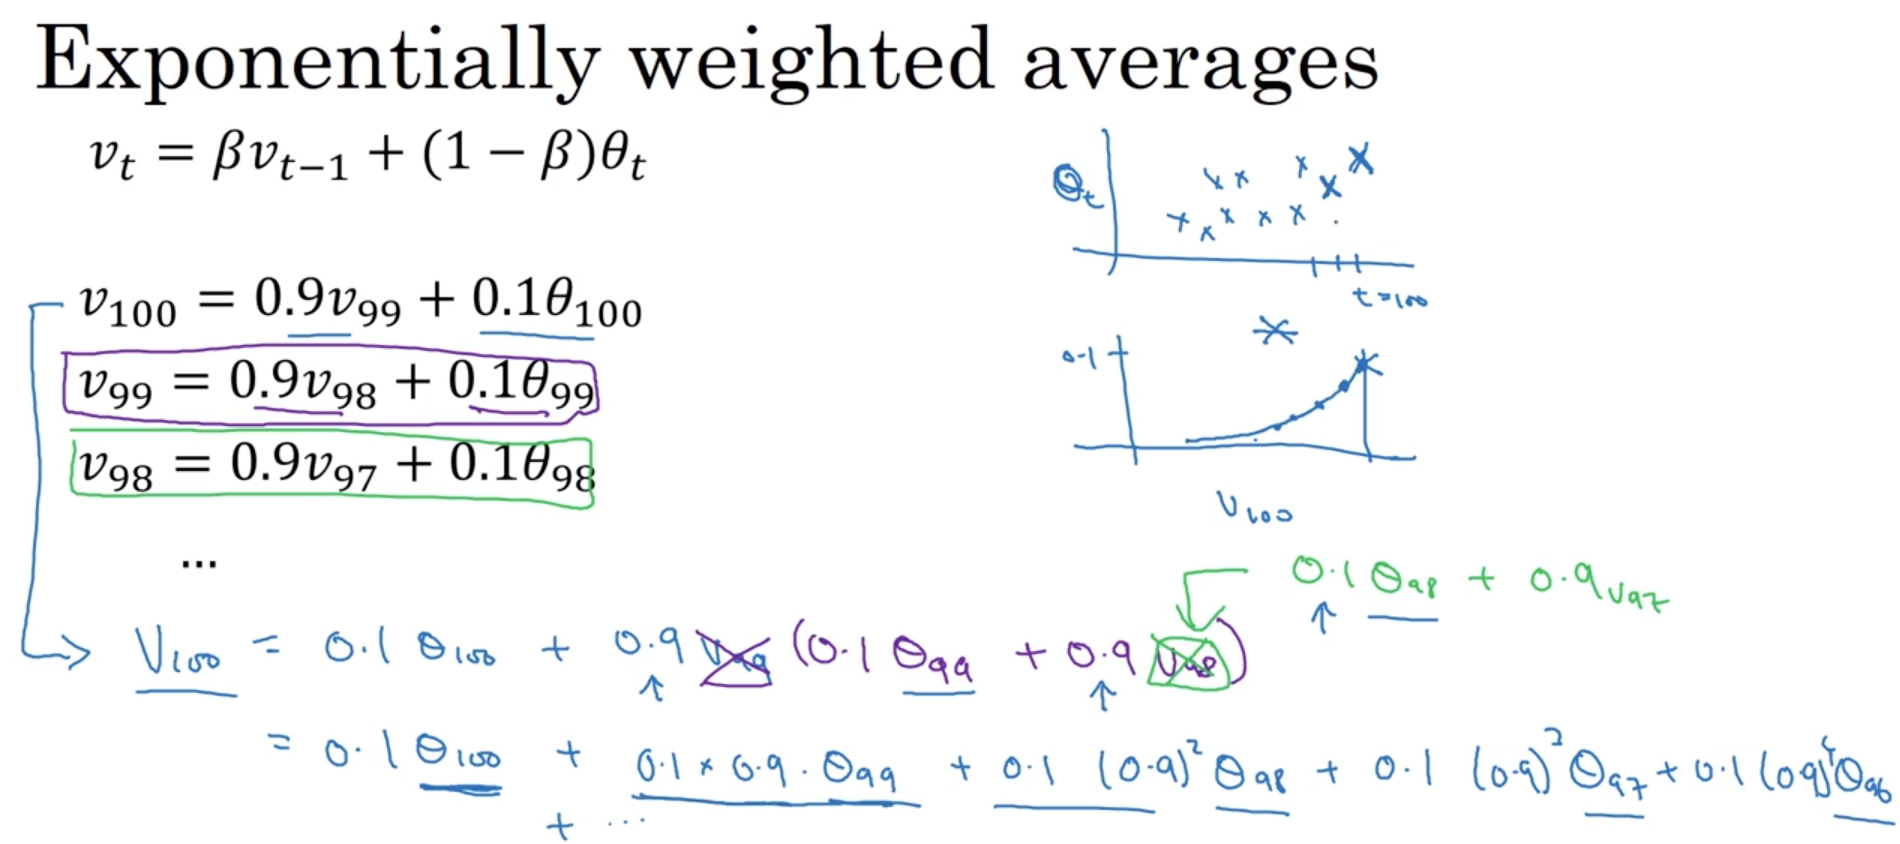 Exponentially weighted averages
v_t = βv_{t−1} + (1 − β)θ_t
θ_t
t=100
v_100 = 0.9v_99 + 0.1θ_100
0.1
v_99 = 0.9v_98 + 0.1θ_99
v_98 = 0.9v_97 + 0.1θ_98
V_100
...
0.1 θ_98 + 0.9 v_97
V_100 = 0.1 θ_100 + 0.9 v_99 (0.1 θ_99 + 0.9 v_98)
= 0.1 θ_100 + 0.1 × 0.9 · θ_99 + 0.1 (0.9)² θ_98 + 0.1 (0.9)³ θ_97 + 0.1 (0.9)⁴ θ_96
+ ...